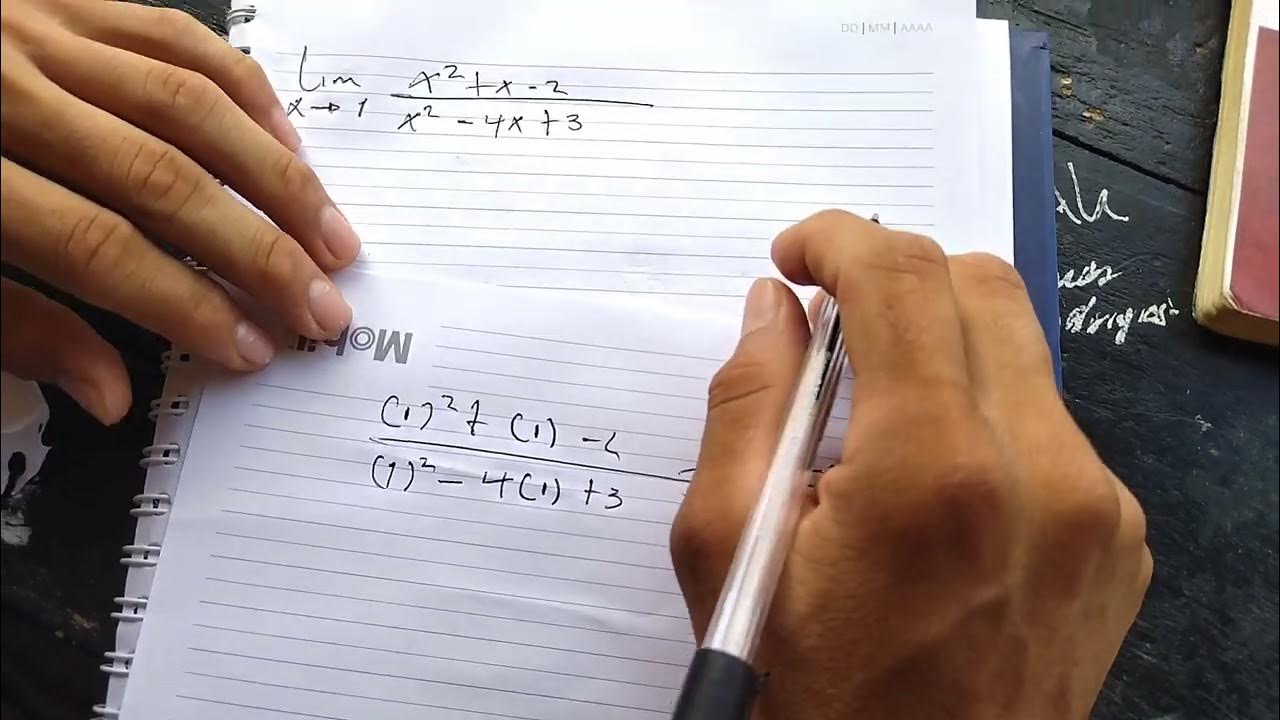 DD | MM | AAAA
lim x² + x - 2
x → 1 x² - 4x + 3
(1)² + (1) - 2
(1)² - 4(1) + 3